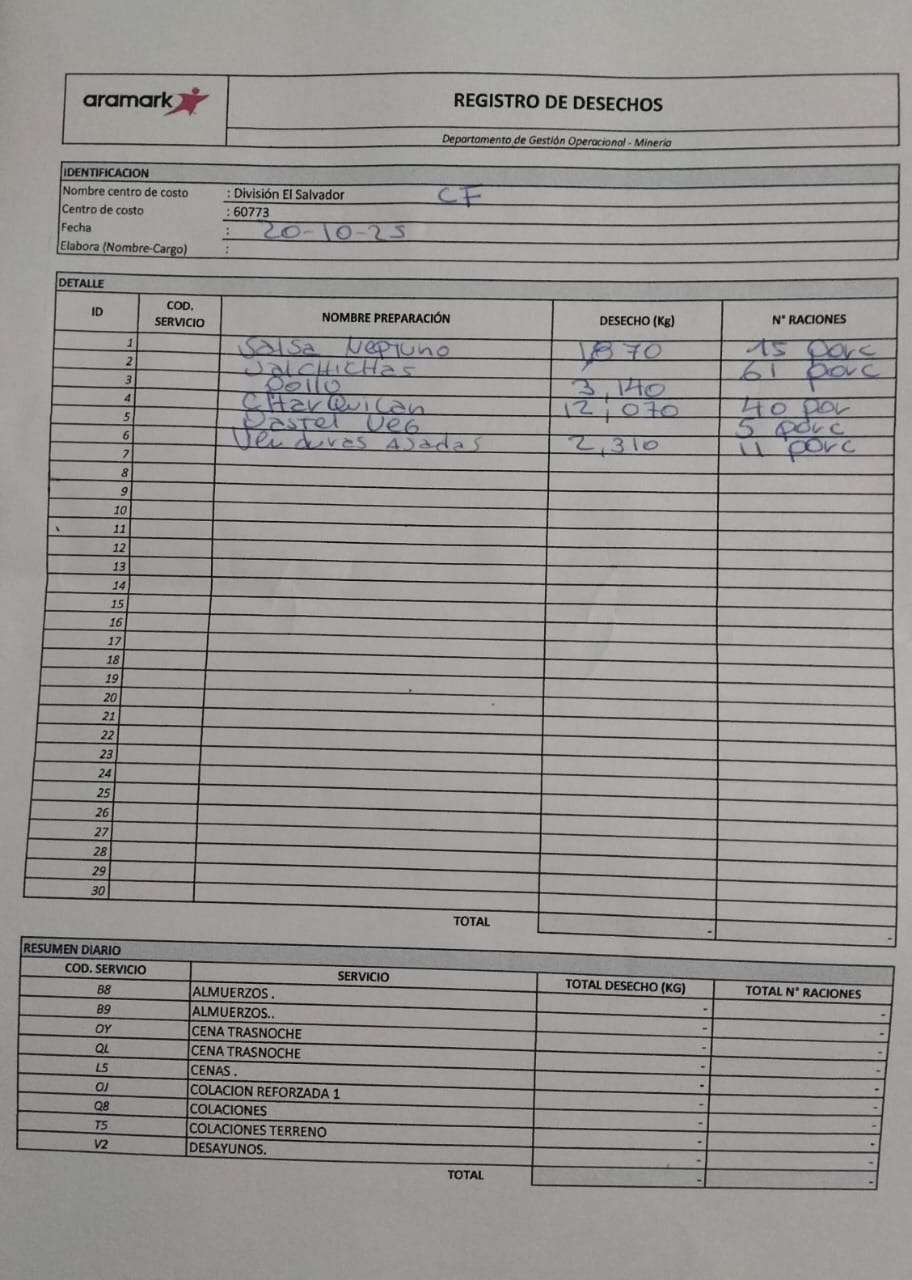 aramark
REGISTRO DE DESECHOS
Departamento de Gestión Operacional - Minería
IDENTIFICACION
Nombre centro de costo : División El Salvador CF
Centro de costo : 60773
Fecha : 20-10-25
Elabora (Nombre-Cargo) :
DETALLE
ID COD. SERVICIO NOMBRE PREPARACIÓN DESECHO (Kg) N° RACIONES
1 Salsa Neptuno 1,870 15 porc
2 Salchichas 61 porc
3 pollo 3,140
4 CHarQuican 12,070 40 por
5 Pastel Veg 5 porc
6 Verduras Asadas 2,310 11 porc
7
8
9
10
11
12
13
14
15
16
17
18
19
20
21
22
23
24
25
26
27
28
29
30
TOTAL - -
RESUMEN DIARIO
COD. SERVICIO SERVICIO TOTAL DESECHO (KG) TOTAL N° RACIONES
B8 ALMUERZOS . - -
B9 ALMUERZOS.. - -
OY CENA TRASNOCHE - -
QL CENA TRASNOCHE - -
L5 CENAS . - -
OJ COLACION REFORZADA 1 - -
Q8 COLACIONES - -
T5 COLACIONES TERRENO - -
V2 DESAYUNOS. - -
TOTAL - -